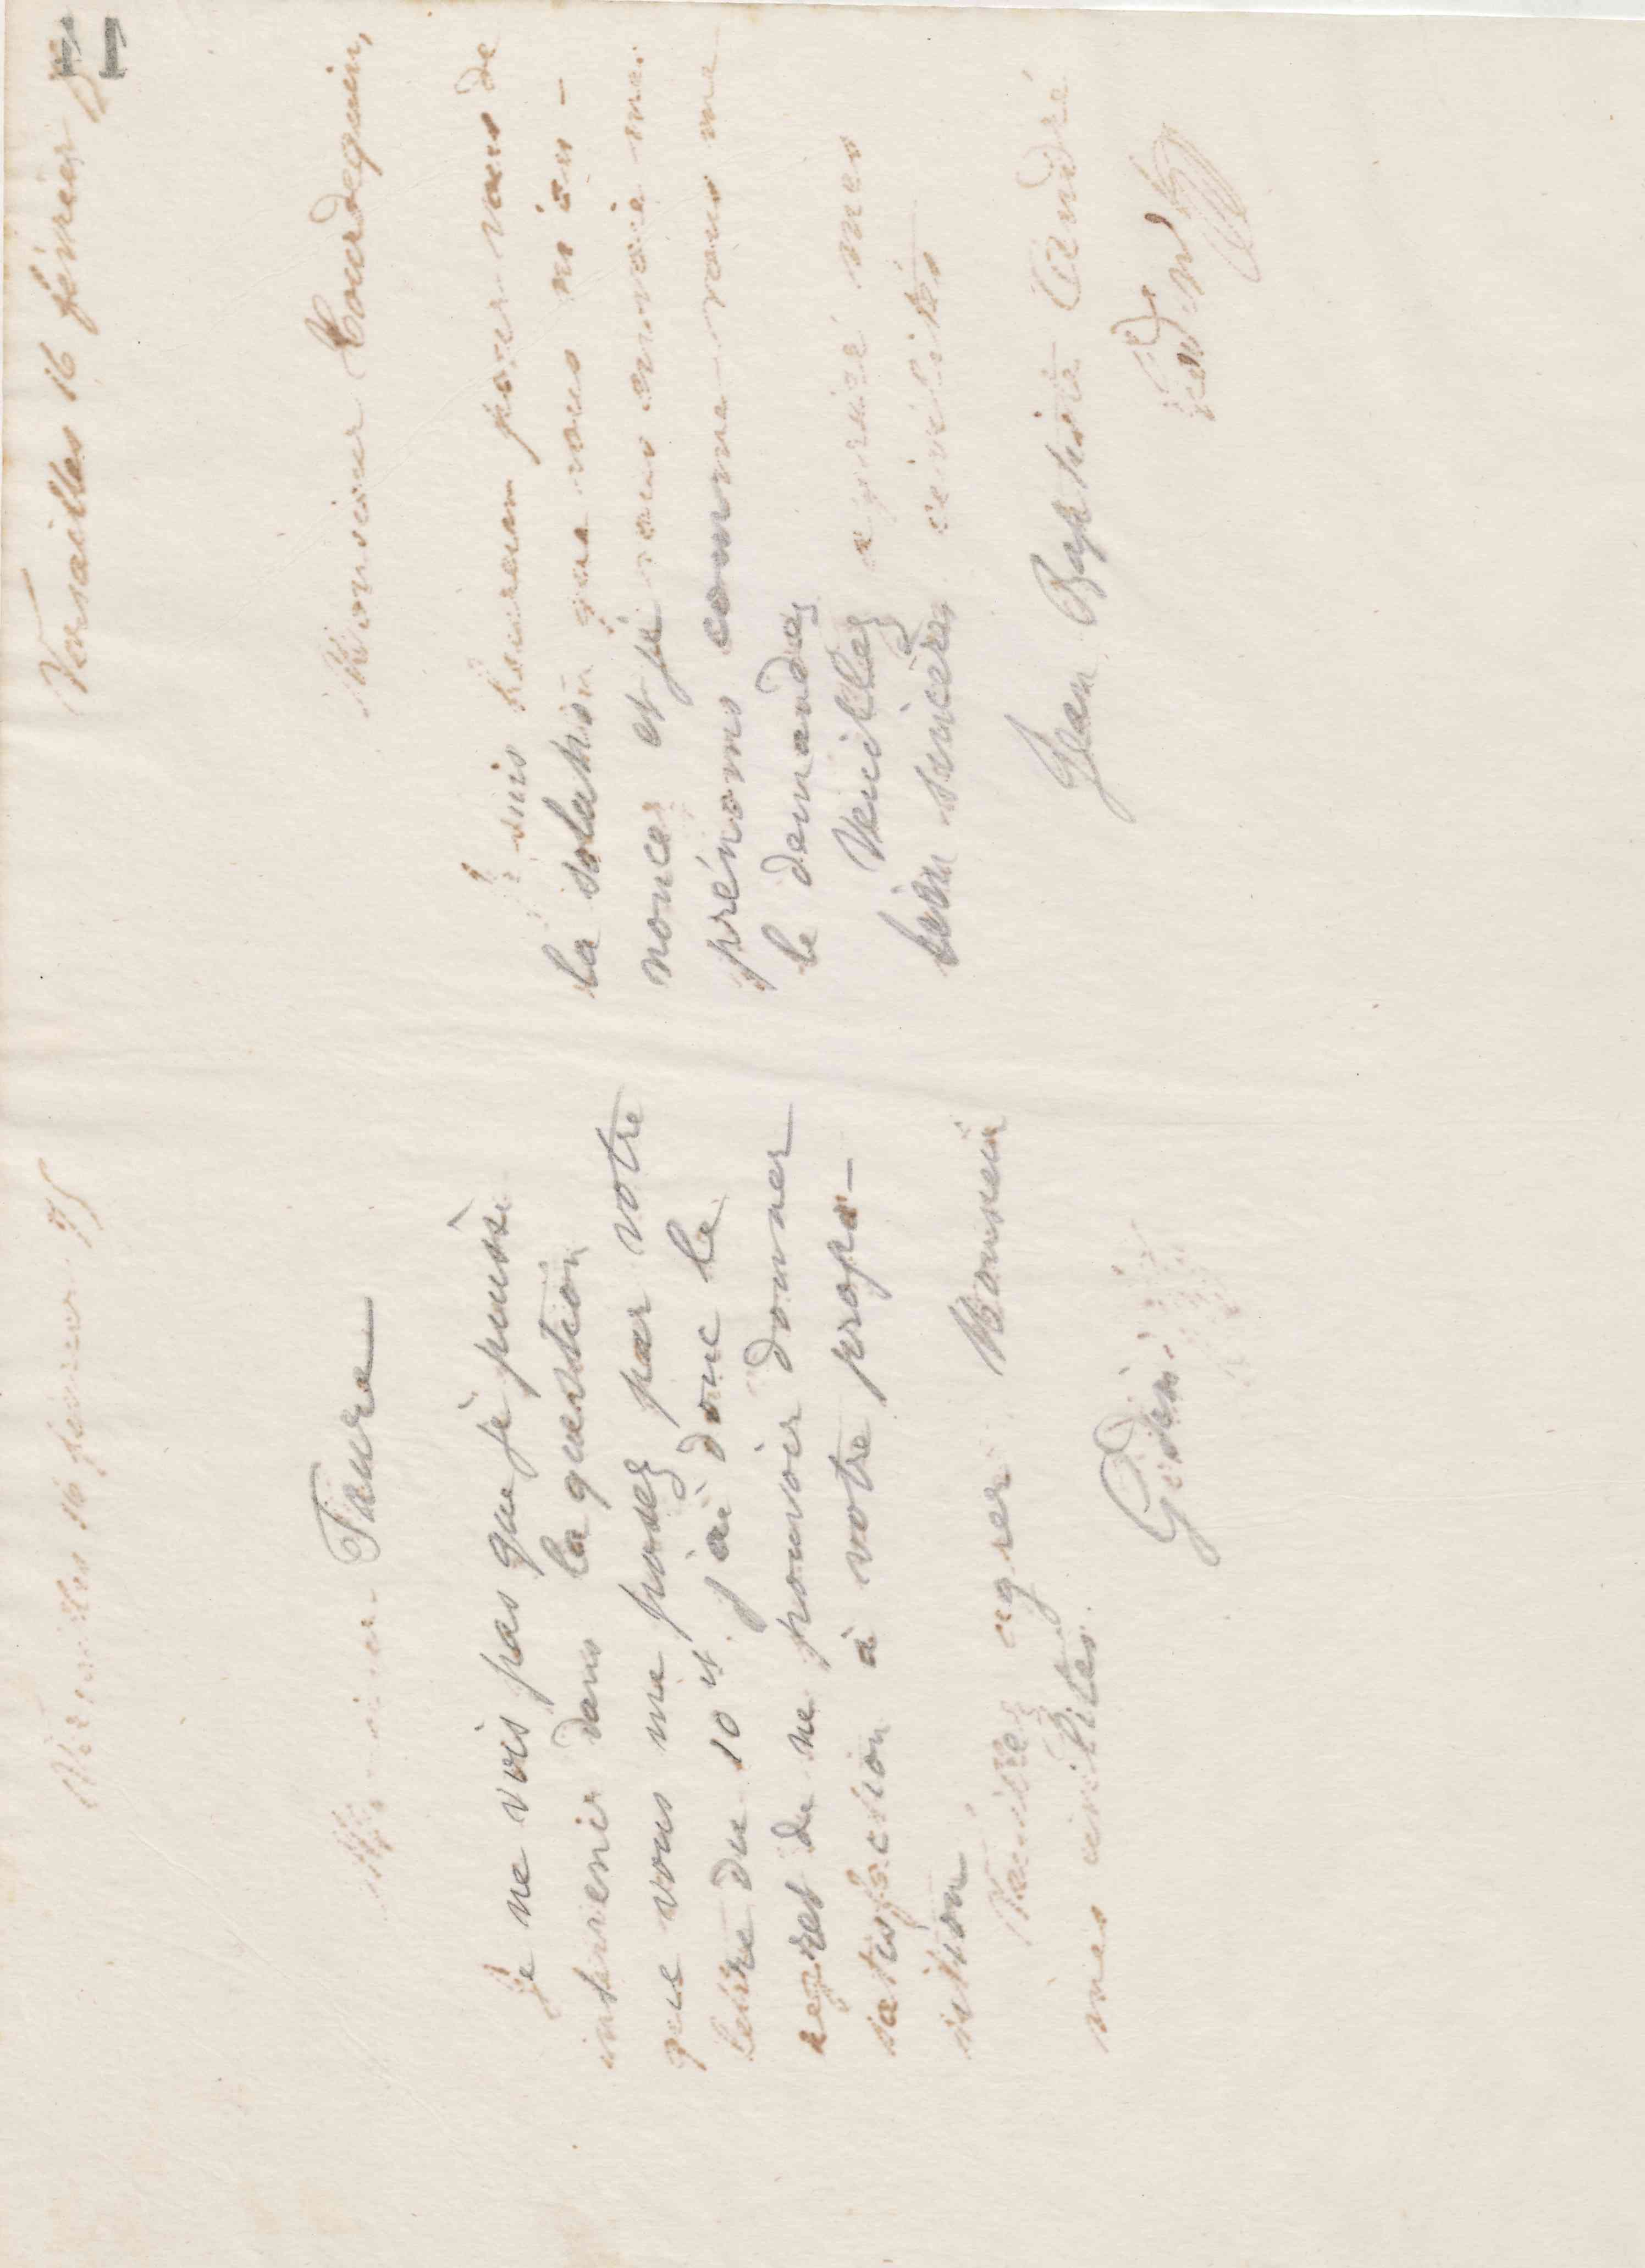 Versailles 16 février 75
Monsieur Faure
Je ne vois pas que je puisse
intervenir dans la question
que vous me posez par votre
lettre du 10 ct j'ai donc le
regret de ne pouvoir donner
satisfaction à votre propo-
sition
Veuillez agréer Monsieur
mes civilités
Godin
Versailles 16 février
Monsieur Hourdequin,
Je suis heureux pour vous de
la solution que vous m'an-
noncez et je vous envoie mes
prénoms comme vous me
le demandez
Veuillez agréer mes
bien sincères civilités
Jean Baptiste André
Godin